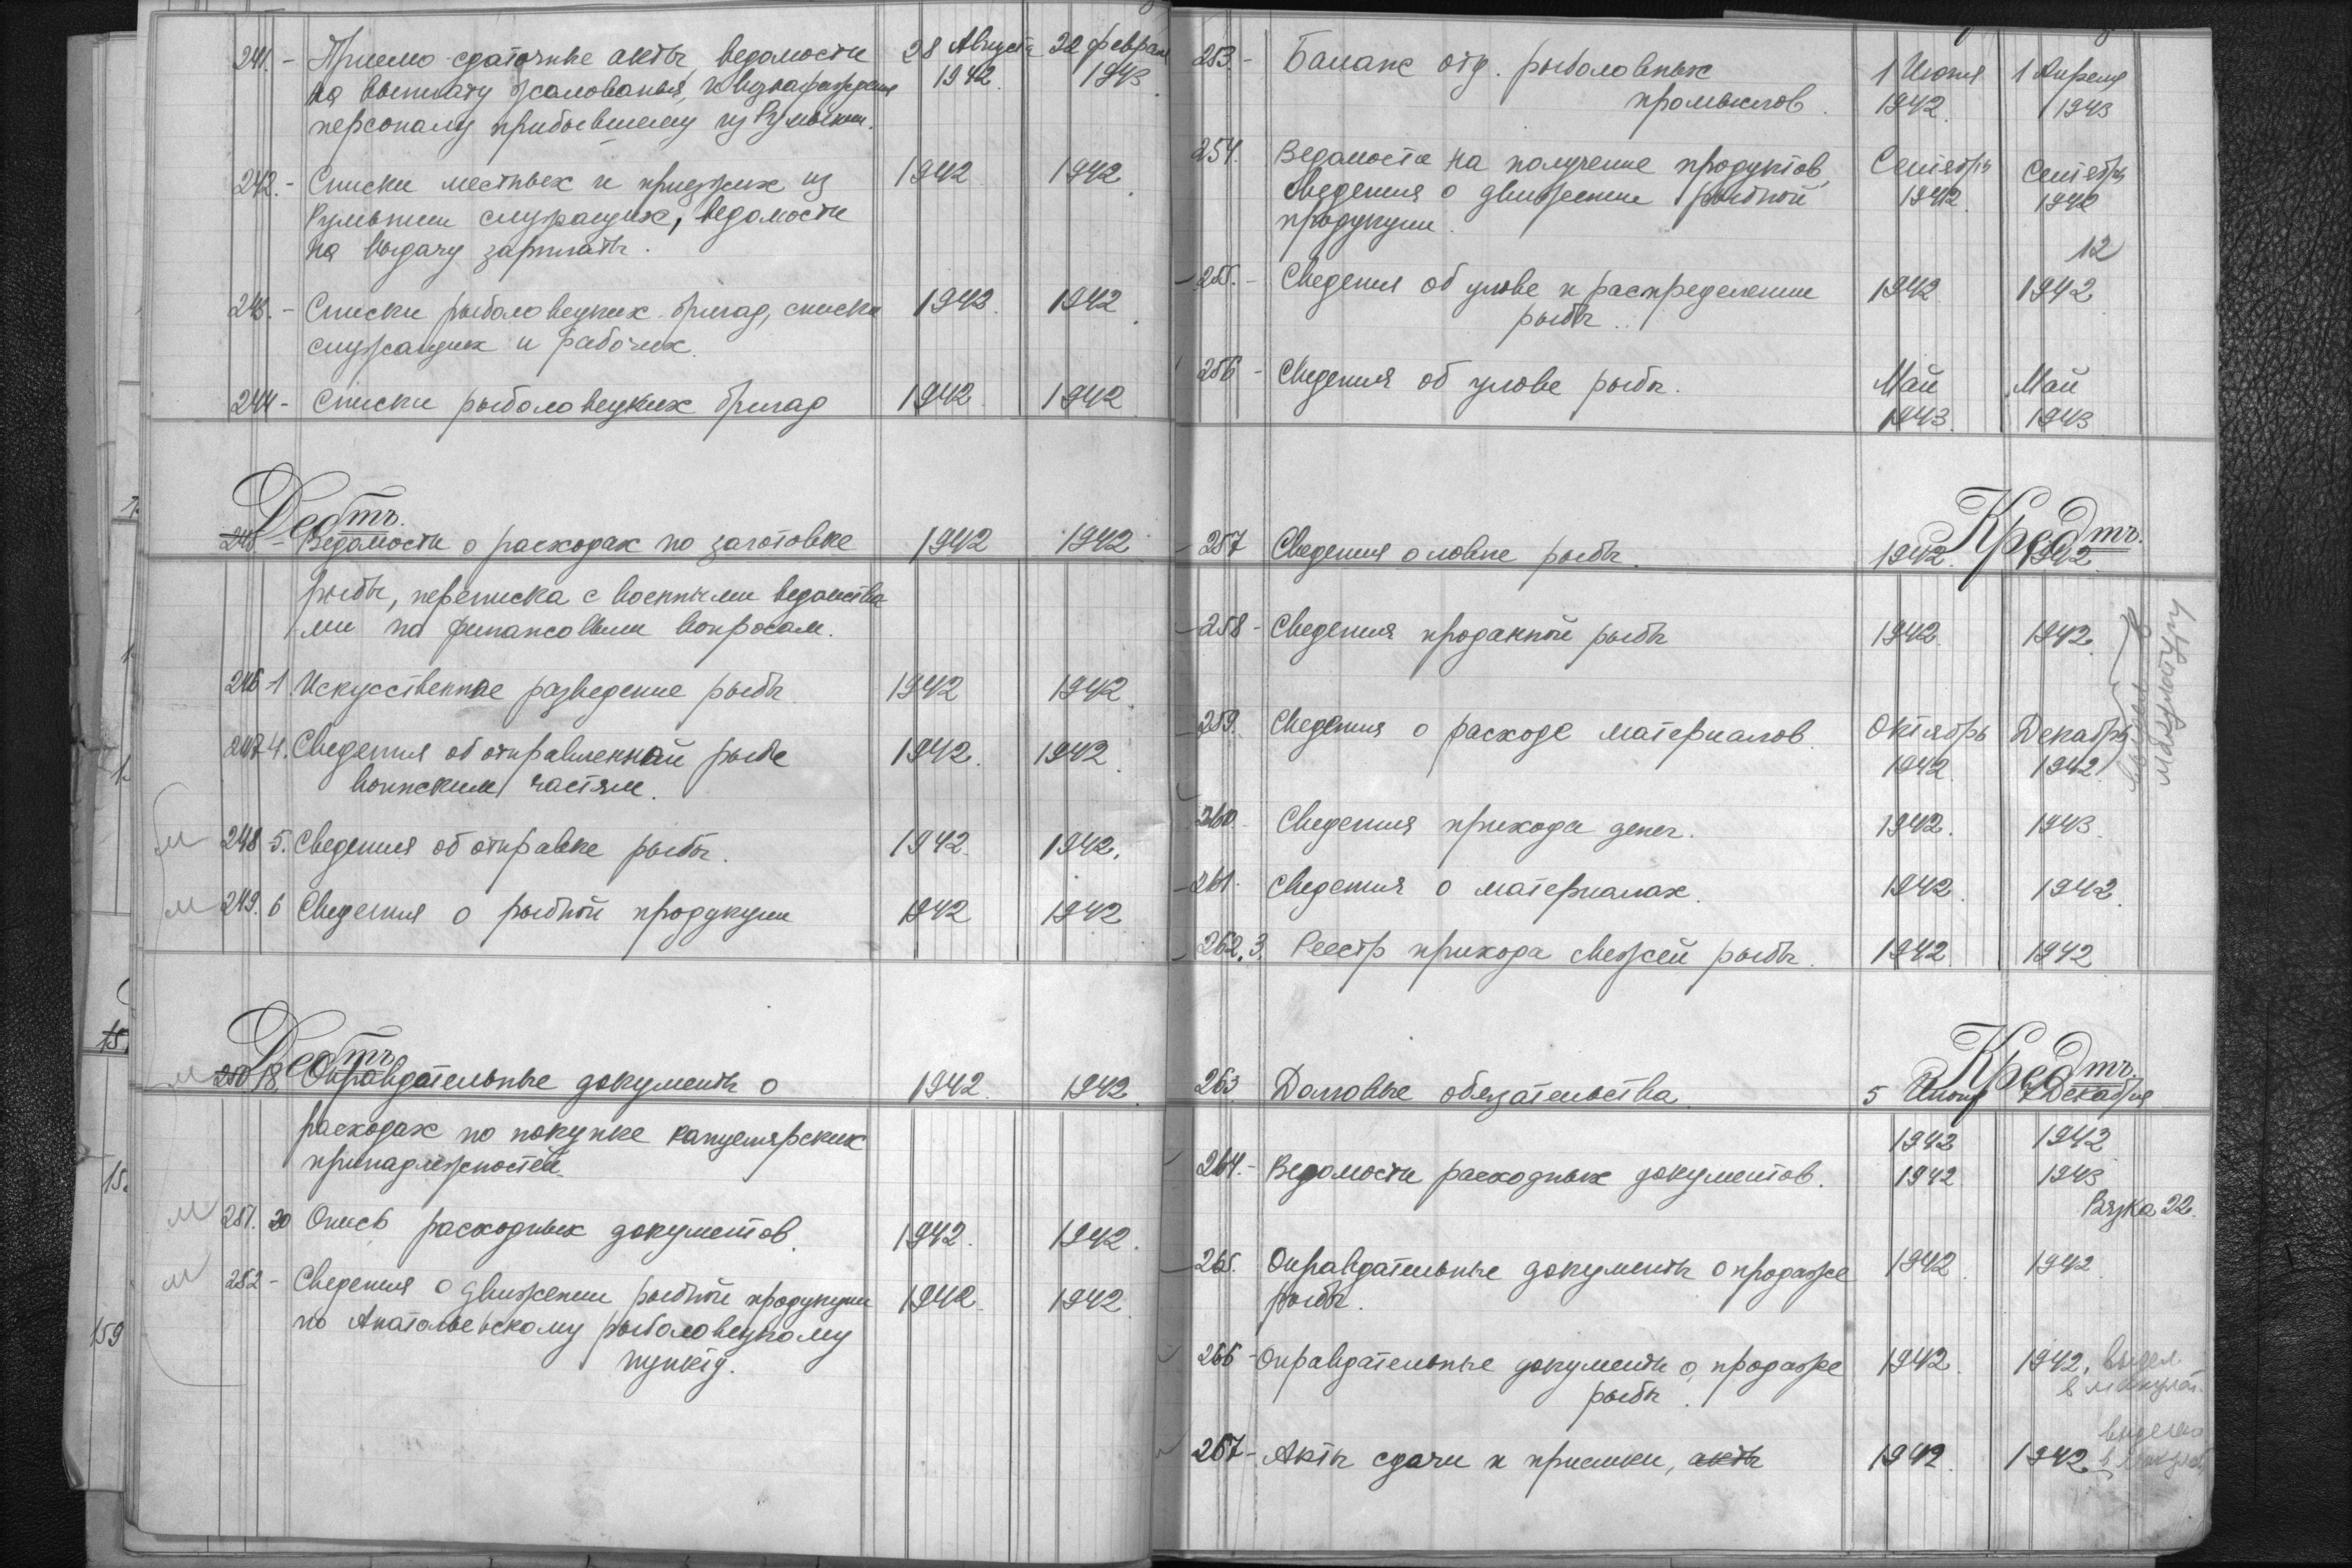 241. - Приемо-сдаточные акты, ведомости 28 Августа 22 февраля
на выплату жалованья, и вознаграждения 1942. 1943.
персоналу прибывшему из Румынии.
242. - Списки местных и приезжих из 1942 1942.
Румынии служащих, ведомости
на выдачу зарплаты.
243. - Списки рыболовецких бригад, списки 1942. 1942.
служащих и рабочих.
244 - Списки рыболовецких бригад 1942. 1942
Дебтъ.
245 - Ведомости о расходах по заготовке 1942 1942
рыбы, переписка с военными ведомства
ми по финансовым вопросам.
246 - 1. Искусственное разведение рыбы 1942 1942.
247 4. Сведения об отправленной рыбе 1942. 1942.
воинским частям.
м 248 - 5. Сведения об отправке рыбы. 1942. 1942.
м 249. 6 Сведения о рыбной продукции 1942 1942
Дебтъ
м 250 18. Оправдательные документы о 1942. 1942.
расходах по покупке канцелярских
принадлежностей.
м 251. 20 Опись расходных документов. 1942. 1942.
м 252 - Сведения о движении рыбной продукции 1942. 1942
по Анатольевскому рыболовецкому
пункту.
253. - Баланс отд. рыболовных 1 Июня 1 Апреля
промыслов. 1942. 1943
254. Ведомости на получение продуктов, Сентябрь Сентябрь
сведения о движении рыбной 1942. 1942
продукции.
12
255. - Сведения об улове и распределении 1942 1942
рыбы.
256 - Сведения об улове рыбы. Май Май
1943. 1943
Кредтъ.
257 Сведения о ловле рыбы. 1942. 1942.
258 - Сведения проданной рыбы 1942. 1942.
259. Сведения о расходе материалов. Октябрь Декабрь
1942. 1942
в
макулатуру
260. Сведения прихода денег. 1942. 1943.
261. Сведения о материалах. 1942. 1942.
262. 3. Реестр прихода свежей рыбы. 1942. 1942
Кредтъ.
263 Долговые обязательства. 5 7 Декабря
1942 1942
264. - Ведомости расходных документов. 1942 1943
Вязка 22.
265. Оправдательные документы о продаже 1942. 1942
рыбы.
266 - Оправдательные документы о продаже 1942. 1942. выдел
рыбы. в макулат.
267 - Акты сдачи и приемки, акты 1942. 1942. выделено
в макулат
15.
15.
159